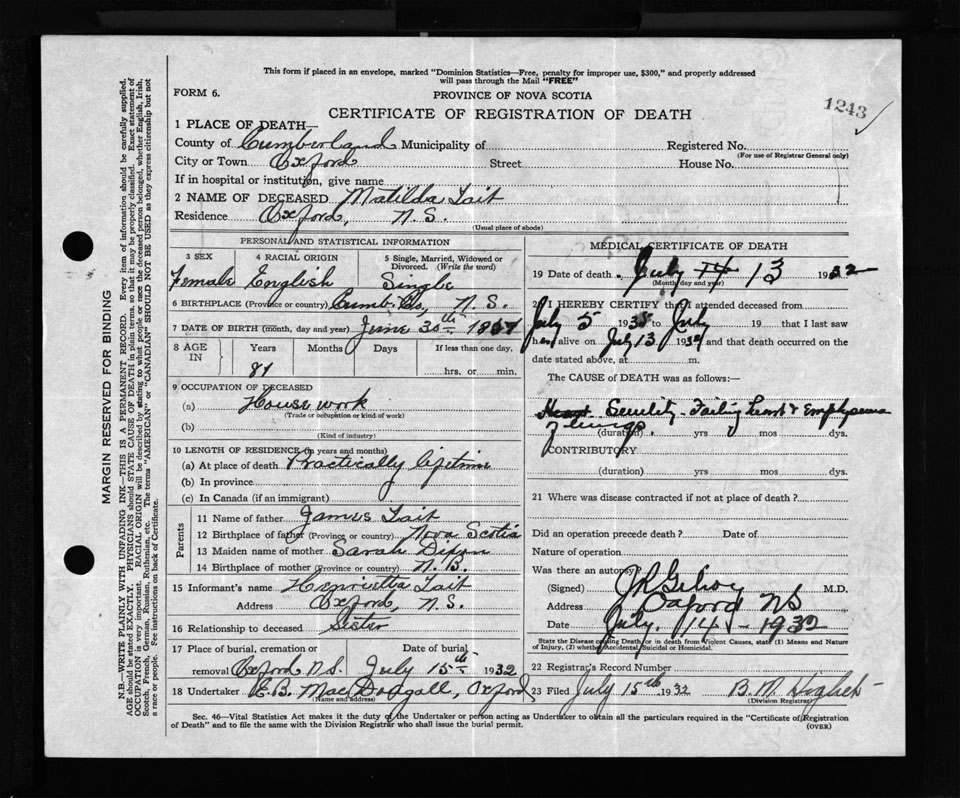 This form if placed in an envelope, marked "Dominion Statistics—Free, penalty for improper use, $300," and properly addressed
will pass through the Mail "FREE"
FORM 6.
PROVINCE OF NOVA SCOTIA
1243
CERTIFICATE OF REGISTRATION OF DEATH
1 PLACE OF DEATH—
County of Cumberland Municipality of Registered No.
(For use of Registrar General only)
City or Town Oxford Street House No.
If in hospital or institution, give name
2 NAME OF DECEASED Matilda Tait
Residence Oxford, N.S.
(Usual place of abode)
PERSONAL AND STATISTICAL INFORMATION
3 SEX 4 RACIAL ORIGIN 5 Single, Married, Widowed or
Divorced. (Write the word)
Female English Single
6 BIRTHPLACE (Province or country) Cumb. Co., N.S.
7 DATE OF BIRTH (month, day and year) June 30th
8 AGE IN Years Months Days If less than one day,
81 hrs. or min.
9 OCCUPATION OF DECEASED
(a) House work
(Trade or occupation or kind of work)
(b)
(Kind of industry)
10 LENGTH OF RESIDENCE (in years and months)
(a) At place of death Practically lifetime
(b) In province
(c) In Canada (if an immigrant)
Parents
11 Name of father James Tait
12 Birthplace of father (Province or country) Nova Scotia
13 Maiden name of mother Sarah Dixon
14 Birthplace of mother (Province or country) N.B.
15 Informant's name Henrietta Tait
Address Oxford, N.S.
16 Relationship to deceased Sister
17 Place of burial, cremation or Date of burial
removal Oxford N.S. July 15th 1932
18 Undertaker E.B. MacDougall, Oxford
(Name and address)
MEDICAL CERTIFICATE OF DEATH
19 Date of death July 14 13 1932
(Month, day and year)
20 I HEREBY CERTIFY that I attended deceased from
July 5 19 to July 19 that I last saw
h alive on July 13 193 and that death occurred on the
date stated above, at m.
The CAUSE OF DEATH was as follows:—
Heart Senility - Failing heart & Emphysema
of lungs
(duration) yrs mos dys.
CONTRIBUTORY
(duration) yrs mos dys.
21 Where was disease contracted if not at place of death?
Did an operation precede death? Date of
Nature of operation
Was there an autopsy?
(Signed) M.D.
Address Oxford NS
Date July. 14 - 1932
State the Disease causing Death or in death from Violent Causes, state (1) Means and Nature
of Injury, (2) whether Accidental, Suicidal or Homicidal.
22 Registrar's Record Number
23 Filed July 15th 1932 B. M.
(Division Registrar)
Sec. 46—Vital Statistics Act makes it the duty of the Undertaker or person acting as Undertaker to obtain all the particulars required in the "Certificate of Registration
of Death" and to file the same with the Division Registrar who shall issue the burial permit.
(OVER)
MARGIN RESERVED FOR BINDING
N.B.—WRITE PLAINLY WITH UNFADING INK—THIS IS A PERMANENT RECORD. Every item of information should be carefully supplied.
AGE should be stated EXACTLY. PHYSICIANS should STATE CAUSE OF DEATH in plain terms, so that it may be properly classified. Exact statement of
OCCUPATION is very important. RACIAL ORIGIN will be described by stating to what people or race the deceased person belonged, whether English, Irish,
Scotch, French, German, Russian, Ruthenian, etc. The terms "AMERICAN" or "CANADIAN" SHOULD NOT BE USED as they express citizenship but not
a race or people. See instructions on back of Certificate.